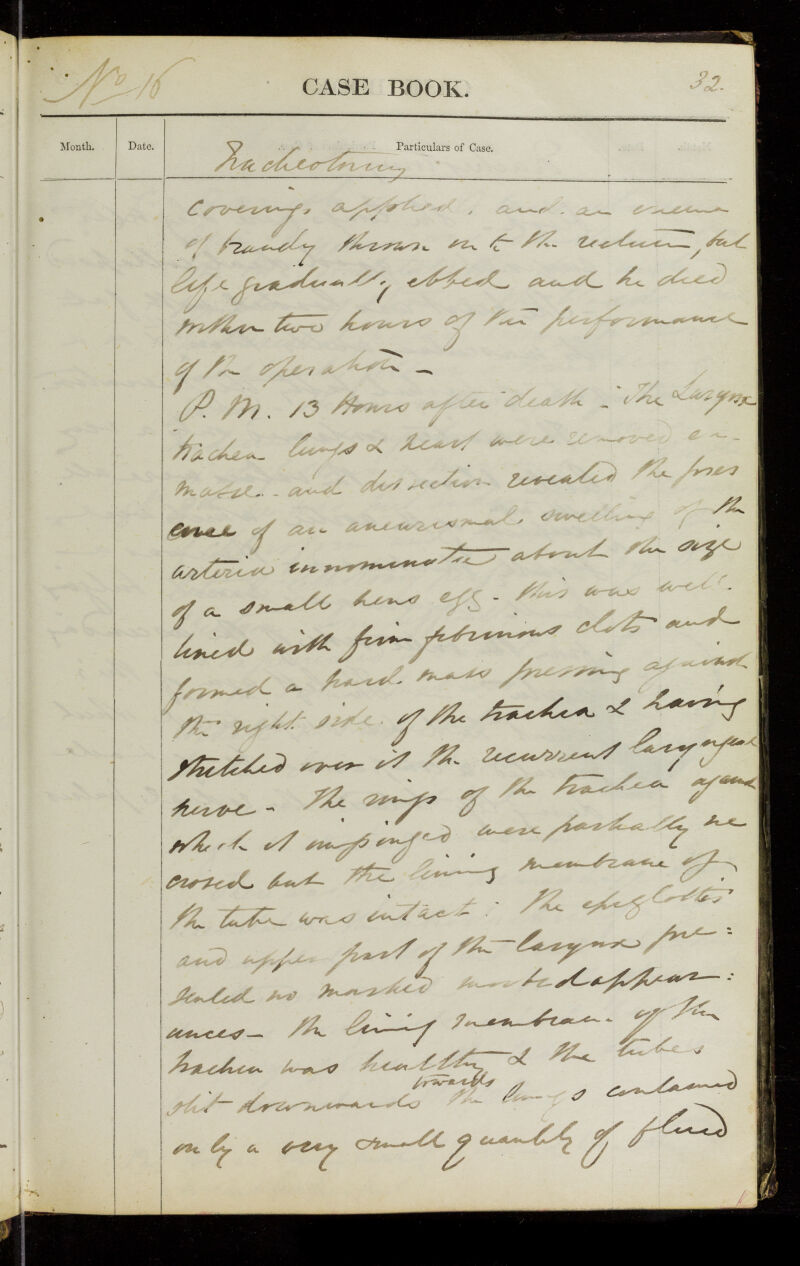 No 16
CASE BOOK.
32.
Month.
Date.
Particulars of Case.
Tracheotomy
coverings applied, and an enema
of brandy thrown into the rectum, but
life gradually ebbed and he died
within two hours of the performance
of the operation —
P. M. 13 Hours after death - The Larynx
trachea lungs & heart were removed en-
masse - and dissection revealed the pres
ence of an aneurismal swelling of the
arteria innominata about the size
of a small hens egg - this was well
lined with firm fibrinous clots and
formed a hard mass pressing against
the right side of the trachea & having
stretched over it the recurrent laryngeal
nerve - The rings of the trachea against
which it impinged were partially ne
crosed but the lining membrane of
the tube was intact : The epiglottis
and upper part of the larynx pre=
sented no marked morbid appear=
ances - the lining membrane of the
trachea was healthy & the tubes
slit downwards towards the lungs contained
only a very small quantity of fluid